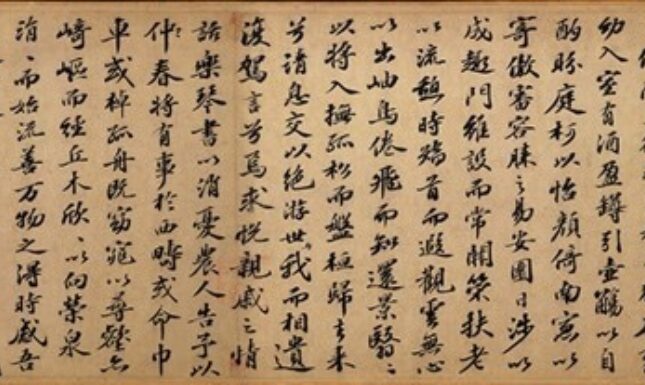 幼入室有酒盈罇引壺觴以自
酌眄庭柯以怡顏倚南窓以
寄傲審容膝之易安園日涉以
成趣門雖設而常關策扶老
以流憩時矯首而遐觀雲無心
以出岫鳥倦飛而知還景翳〻
以將入撫孤松而盤桓歸去来
兮請息交以絶游世我而相遺
復駕言兮焉求悅親戚之情
話樂琴書以消憂農人告予以
仲春將有事於西疇或命巾
車或棹孤舟既窈窕以尋壑亦
崎嶇而經丘木欣〻以向榮泉
涓〻而始流善万物之得時感吾